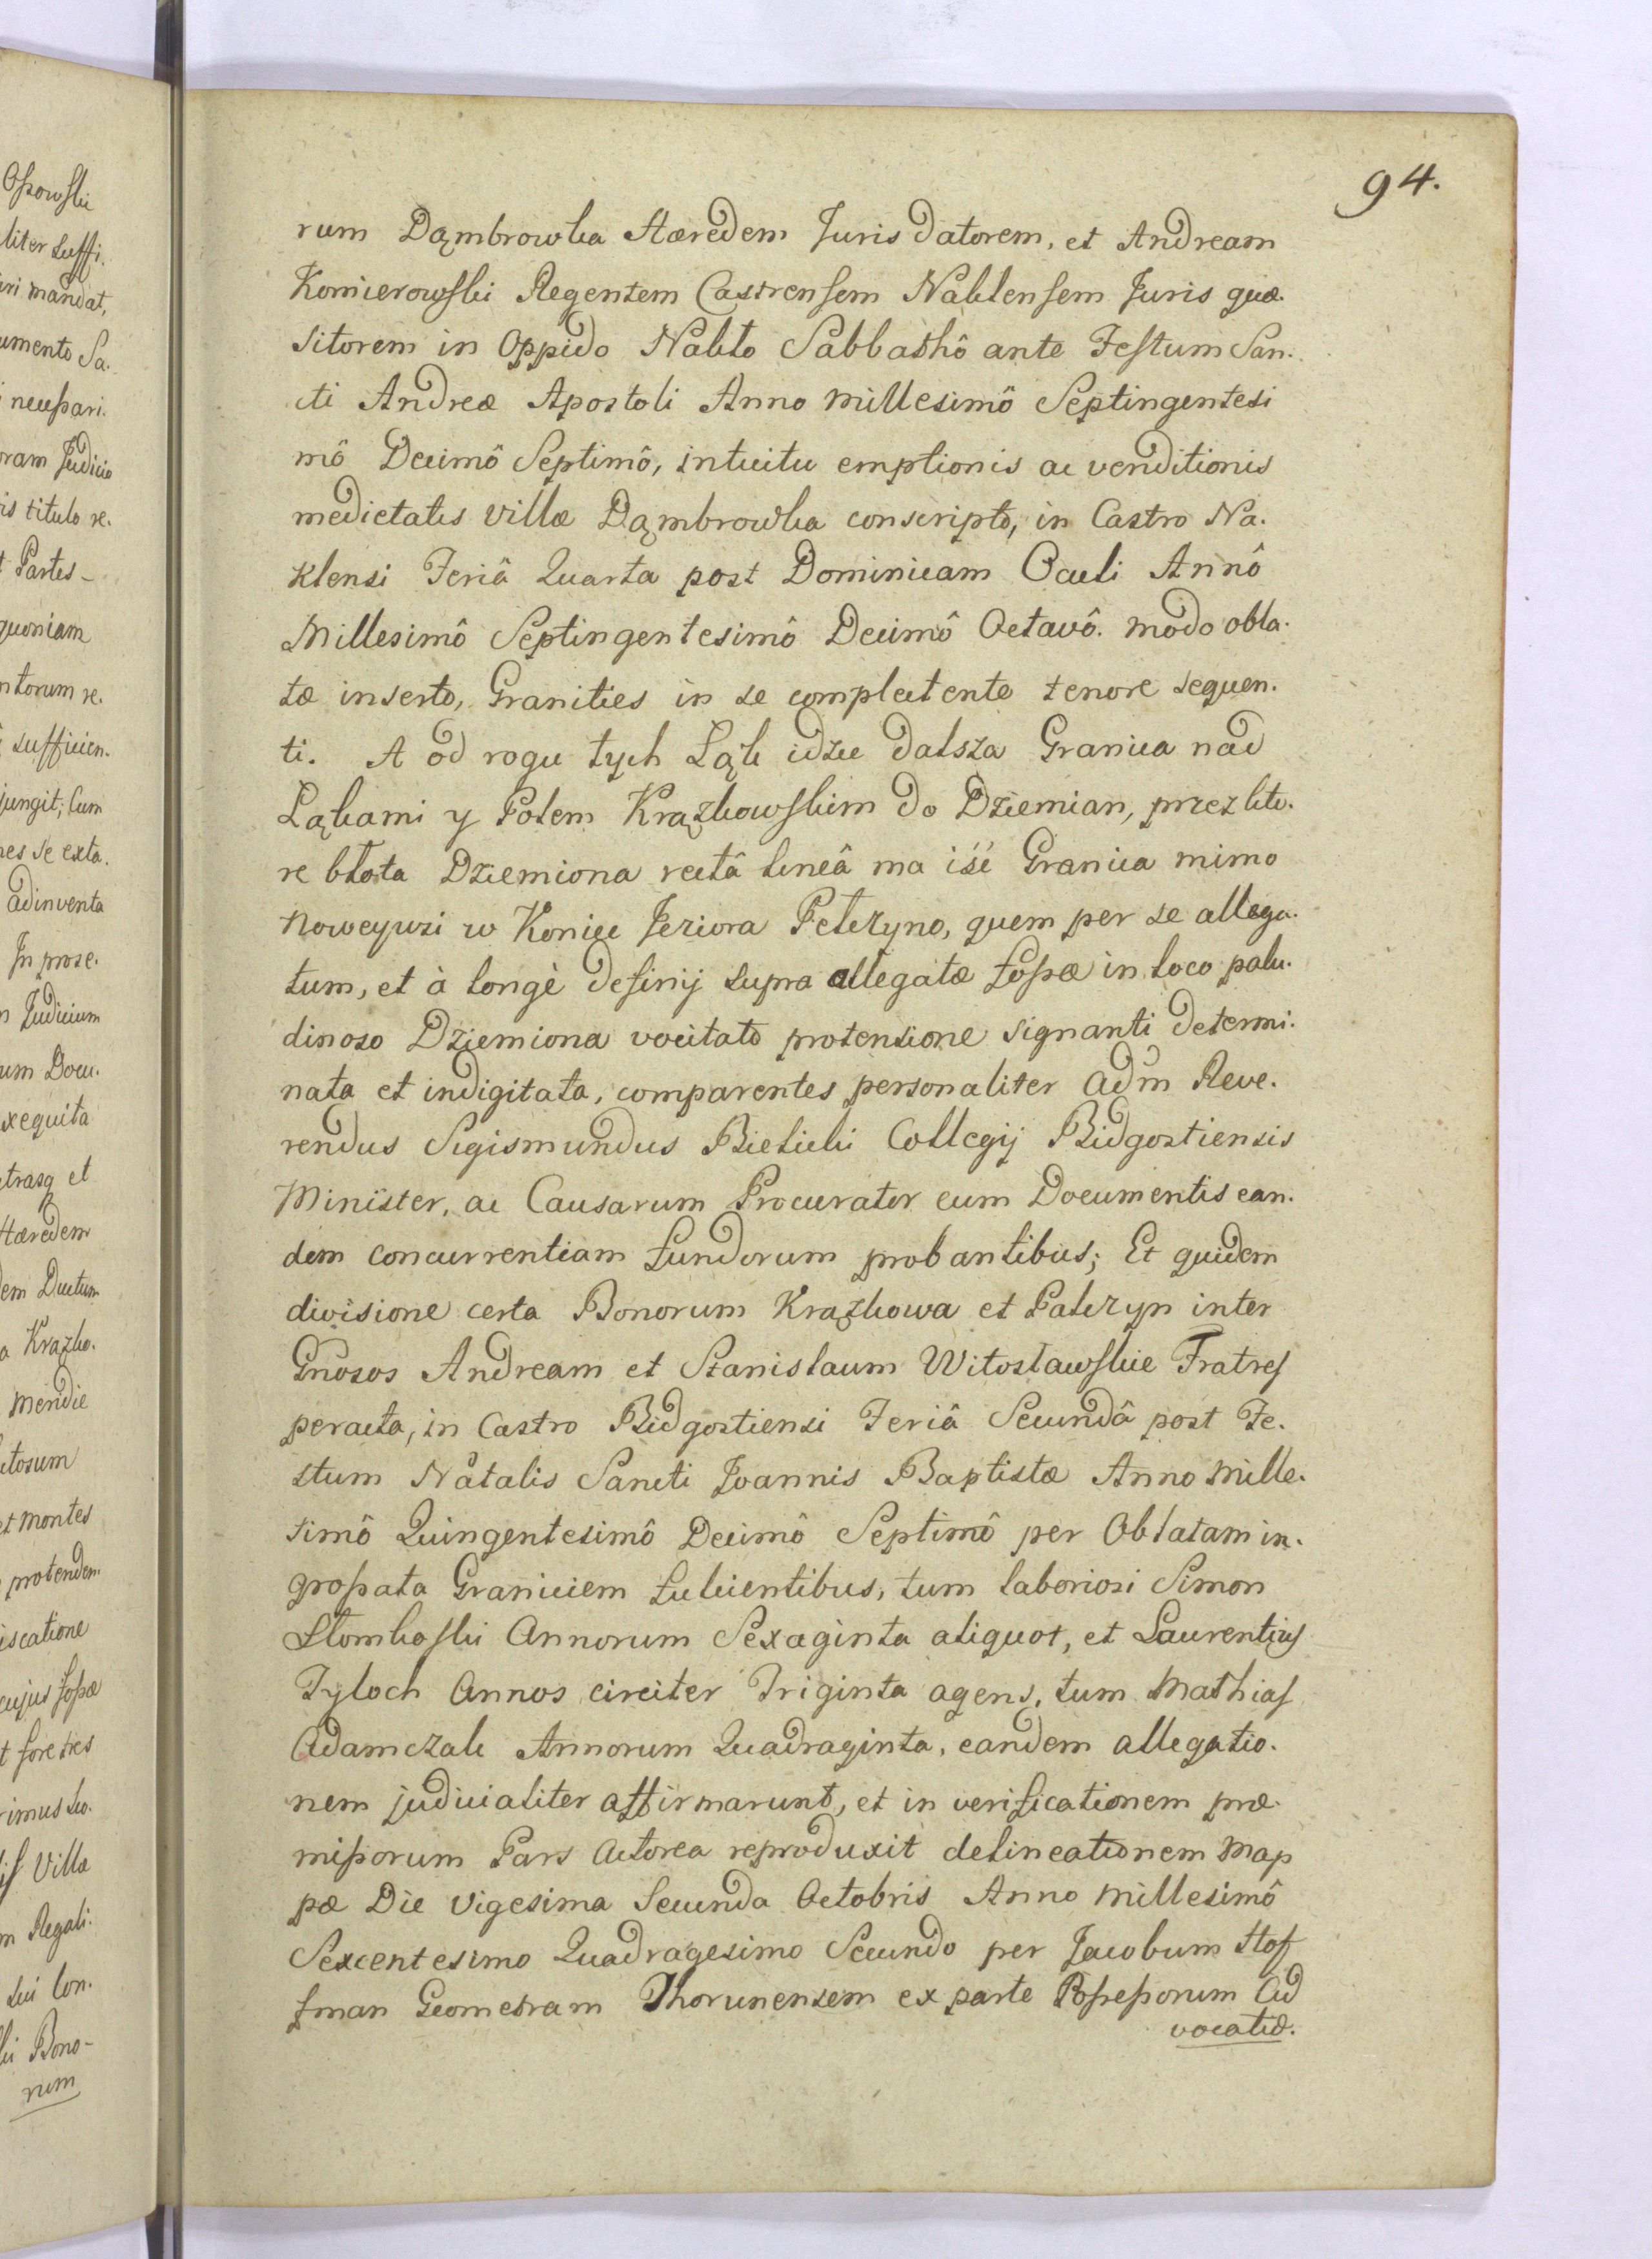 94.
rum Dąmbrowka Hæredem Juris datorem, et Andream
Komierowski Regentem Castrensem Naklensem Juris quæ-
sitorem in Oppido Nakło Sabbathô ante Festum San-
cti Andreæ Apostoli Anno Millesimô Septingentesi
mô Decimô Septimô, intuitu emptionis ac venditionis
medietatis Villæ Dąmbrowka conscripto, in Castro Na-
klensi Feriâ Quarta post Dominicam Oculi Annô
Millesimô Septingentesimô Decimô Octavô. modo obla-
tæ inserto, Granities in se complectente tenore sequen-
ti. A od rogu tych Łąk idzie dalsza Granica nad
Łąkami y Polem Krązkowskim do Dziemian, przez któ-
re błota Dziemiona rectâ lineâ ma iść Granica mimo
Noweywsi w Koniec Jeziora Petczyno, quem per se allega-
tum, et à longè definij supra allegatæ fossæ in loco palu-
dinoso Dziemiona vocitato protensione signanti determi-
nata et indigitata, comparentes personaliter Adm̃ Reve-
rendus Sigismundus Bielicki Collegij Bidgostiensis
Minister, ac Causarum Procurator cum Documentis ean-
dem concurrentiam fundorum probantibus; Et quidem
divisione certa Bonorum Krązkowa et Patczyn inter
Gñosos Andream et Stanislaum Witosławskie Fratres
peracta, in Castro Bidgostiensi Feriâ Secundâ post Fe-
stum Natalis Sancti Joannis Baptistæ Anno Mille-
simô Quingentesimô Decimô Septimô per Oblatam in-
grossata Graniciem fulcientibus, tum laboriosi Simon
Słomkoski Annorum Sexaginta aliquot, et Laurentius
Tyloch Annos circiter Triginta agens, tum Mathias
Adamczak Annorum Quadraginta, eandem allegatio-
nem judicialiter affirmarunt, et in verificationem præ-
missorum Pars Actorea reproduxit delineationem Map
pæ Die Vigesima Secunda Octobris Anno Millesimô
Sexcentesimo Quadragesimo Secundo per Jacobum Hof
fman Geometram Thorunensem ex parte Possessorum Ad
vocatiæ.